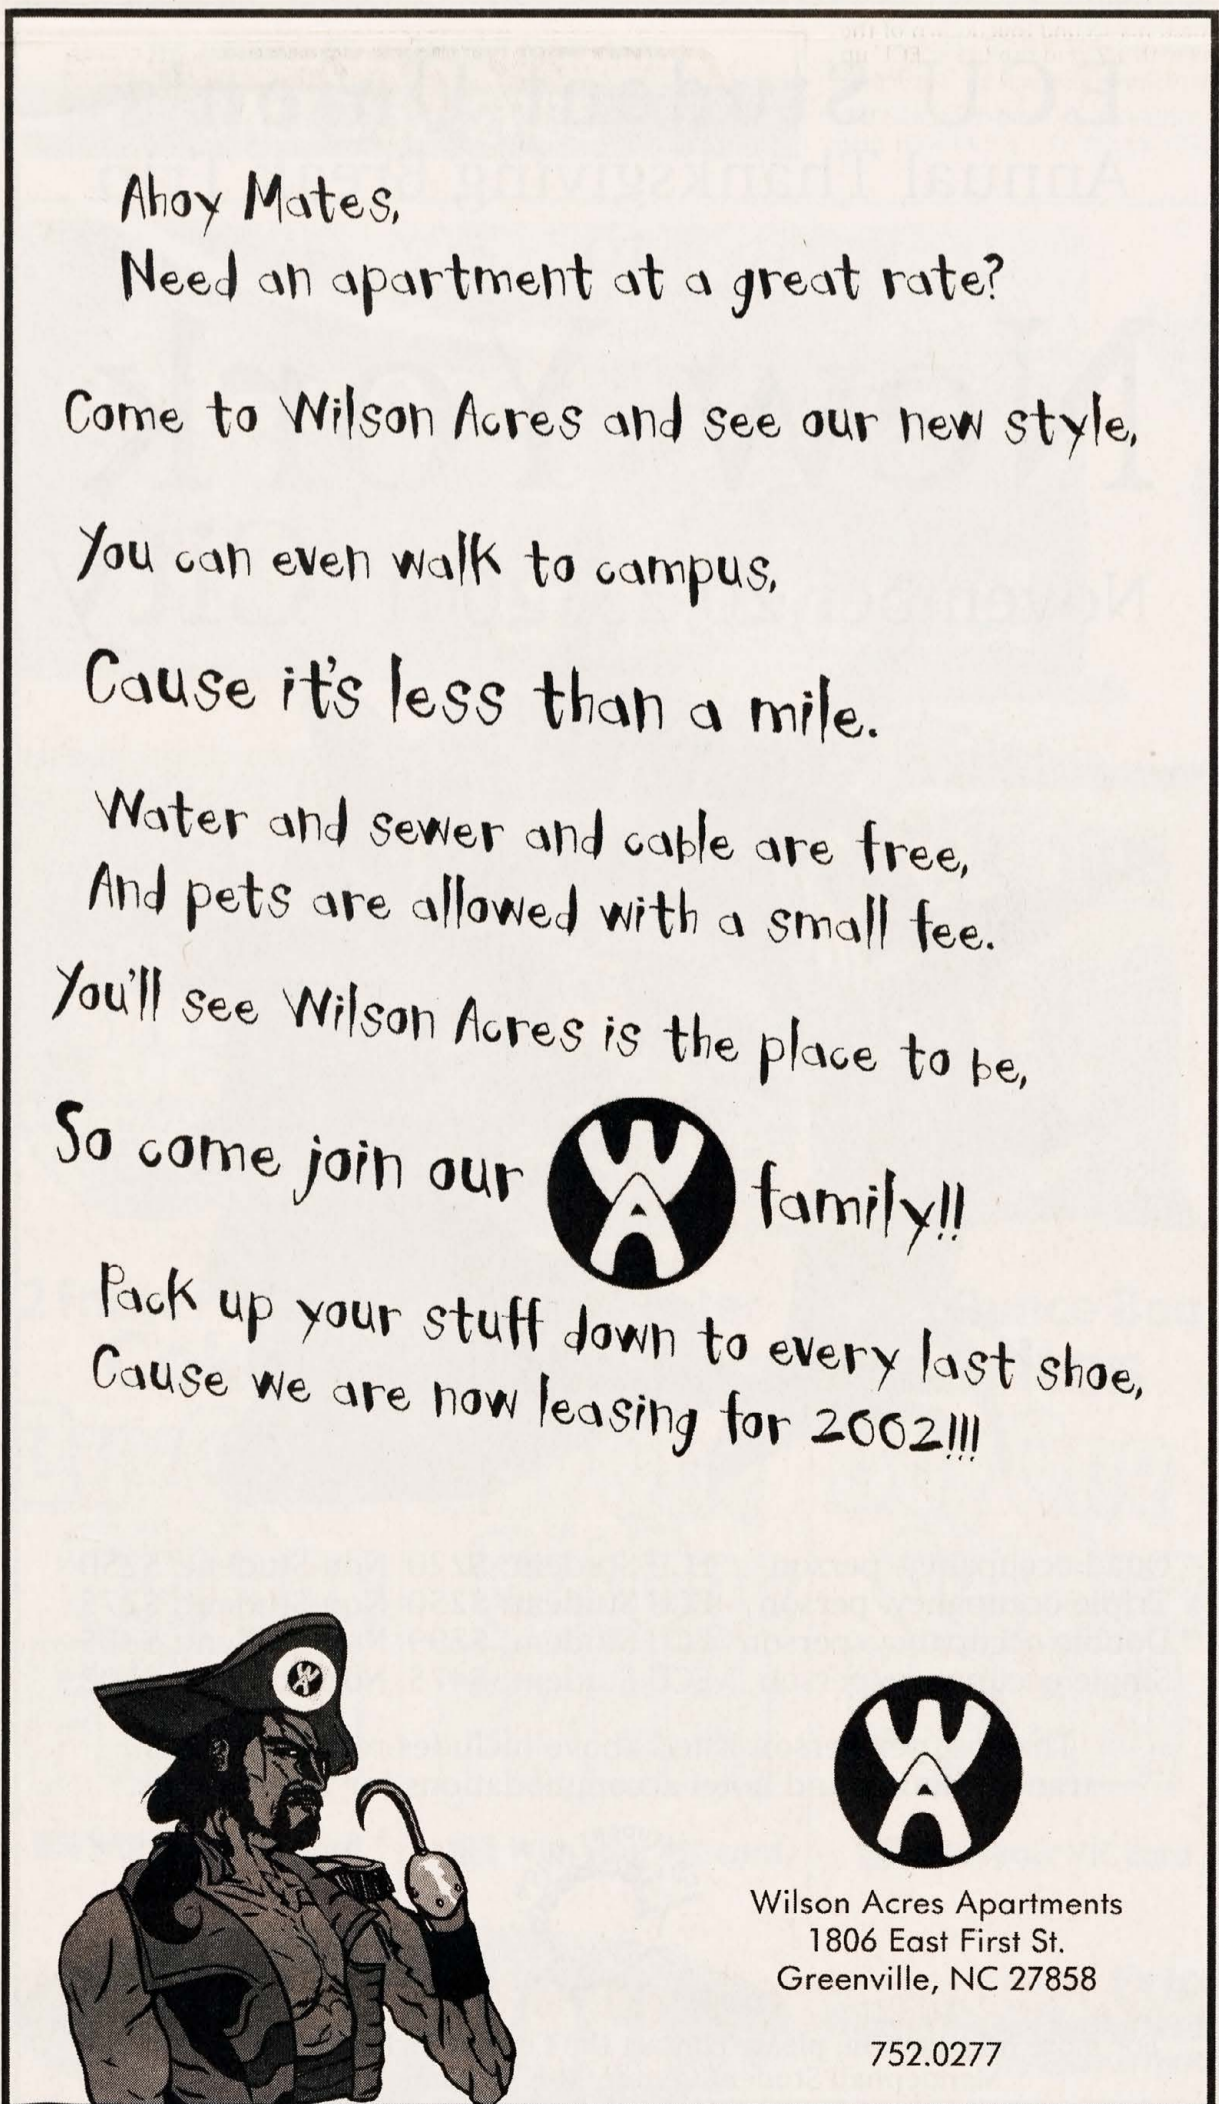 Ahoy Mates,
Need an apartment at a great rate?
Come to Wilson Acres and see our new style,
You can even walk to campus,
Cause it's less than a mile.
Water and sewer and cable are free,
And pets are allowed with a small fee.
You'll see Wilson Acres is the place to be,
So come join our WA family!!
Pack up your stuff down to every last shoe,
Cause we are now leasing for 2002!!!
WA
WA
Wilson Acres Apartments
1806 East First St.
Greenville, NC 27858
752.0277